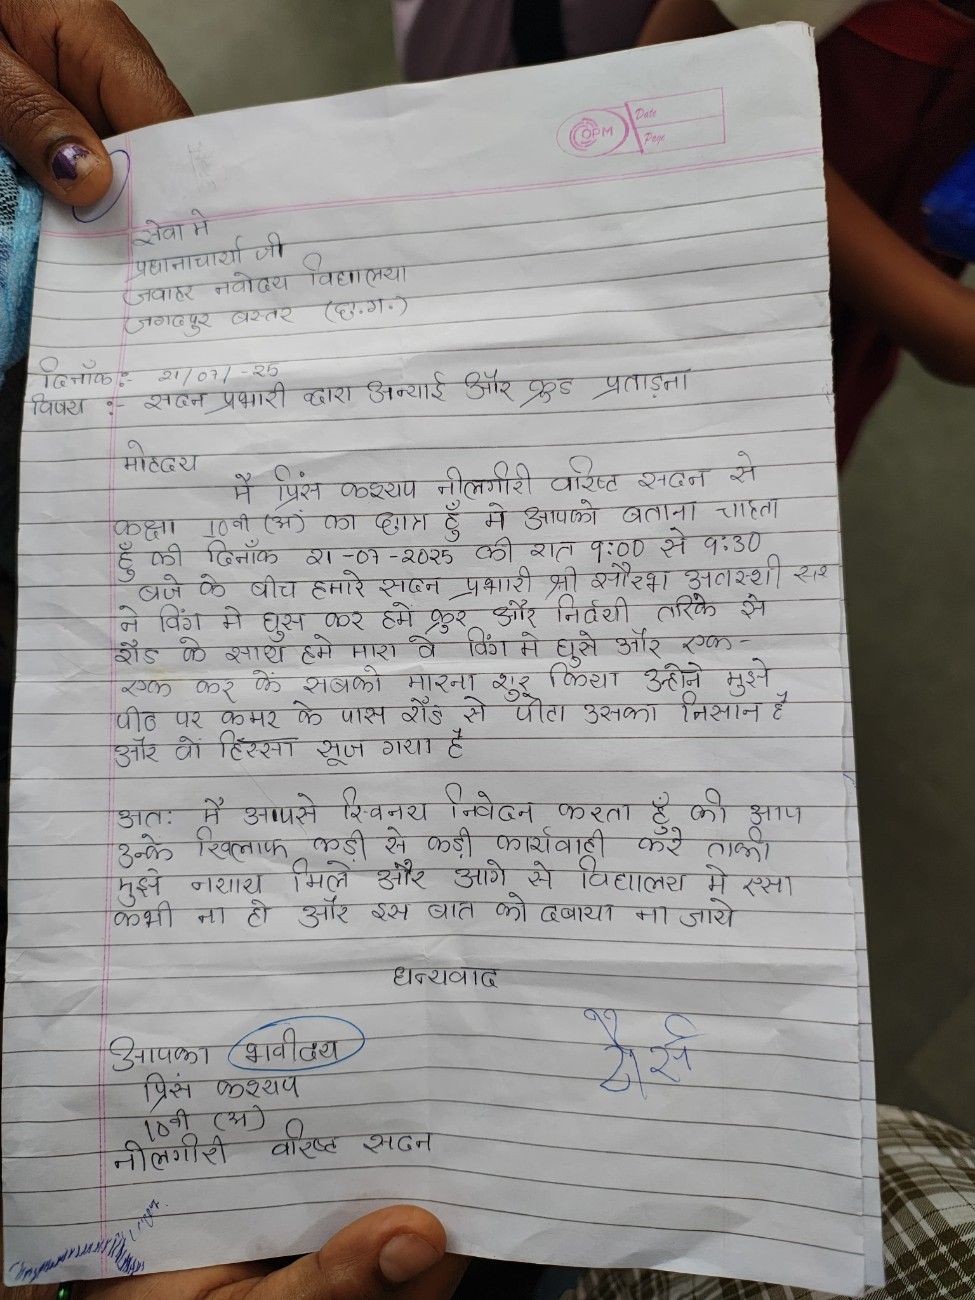 OPM
Date
Page
सेवा मे
प्रधानाचार्या जी
जवाहर नवोदय विद्यालया
जगदपुर बस्तर (छ.ग.)
दिनाँक :- 21/07/-25
विषय :- सदन प्रभारी द्वारा अन्याई और क्रुड प्रताड़ना
मोहदय
मै प्रिंस कश्यप नीलगीरी वरिष्ट सदन से
कक्षा 10वी (अ) का छात्र हूँ मे आपको बताना चाहता
हूँ की दिनाँक 21-07-2025 की रात 9:00 से 9:30
बजे के बीच हमारे सदन प्रभारी श्री सौरभ अवस्थी सर
ने विंग मे घुस कर हमें क्रुर और निर्दयी तरिके से
रौड के साथ हमे मारा वे विंग मे घुसे और एक-
एक कर के सबको मारना शुरू किया उन्होने मुझे
पीठ पर कमर के पास रौड से पीटा उसका निसान है
और वो हिस्सा सूज गया है
अतः मै आपसे स्विनय निवेदन करता हूँ की आप
उनके खिलाफ कड़ी से कड़ी कार्यवाही करे ताकी
मुझे नयाय मिले और आगे से विद्यालय मे एसा
कभी ना हो और इस बात को दबाया ना जाये
धन्यवाद
आपका भावीदय
प्रिंस कश्यप
10वी (अ)
नीलगीरी वरिष्ट सदन